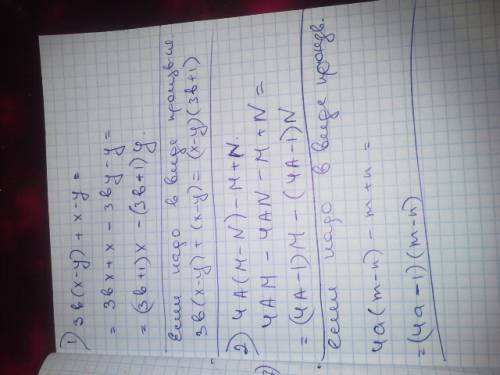 1) 3b(x-y)+x-y=
= 3bx+x-3by-y=
= (3b+1)x-(3b+1)y.
Если надо в виде произв-ия.
3b(x-y)+(x-y)=(x-y)(3b+1)
2) 4A(M-N)-M+N.
4AM-4AN-M+N=
= (4A-1)M-(4A-1)N
Если надо в виде произв.
4a(m-n)-m+n=
=(4a-1)(m-n)